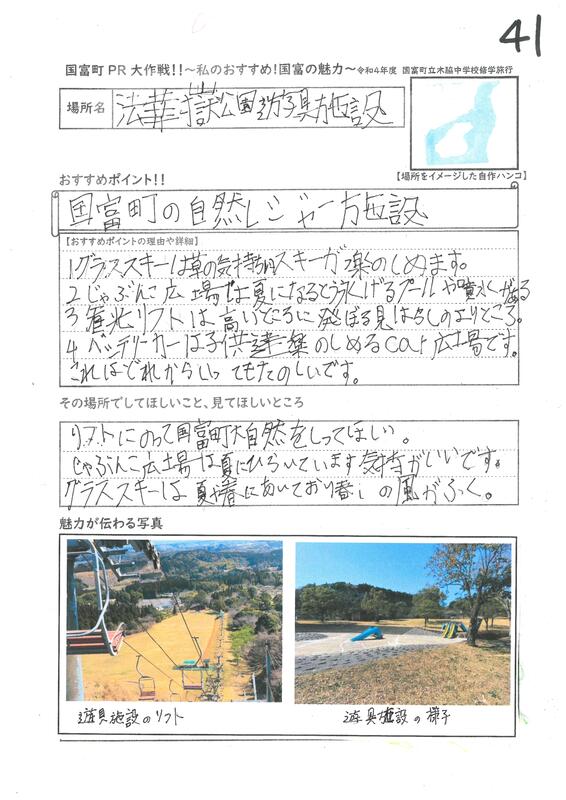 41
国富町PR大作戦!!～私のおすすめ!国富の魅力～令和4年度 国富町立木脇中学校修学旅行
場所名 法華嶽公園遊具施設
【場所をイメージした自作ハンコ】
おすすめポイント!!
国富町の自然レジャー施設
【おすすめポイントの理由や詳細】
1グラススキーは草の気持ちスキーが楽のしめます。
2じゃぶんこ広場では夏になると泳げるプールや噴水がある
3観光リフトは高いところに登ぼる見はらしのよりところ。
4バッテリーカーは子供達楽のしめるcar広場です。
これはどれからいってもたのしいです。
その場所でしてほしいこと、見てほしいところ
リフトにのって国富町大自然をしってほしい。
じゃぶんこ広場は夏にひらいています気持がいいです。
グラススキーは夏や春にあいており春いの風がふく。
魅力が伝わる写真
遊具施設のリフト
遊具施設の様子